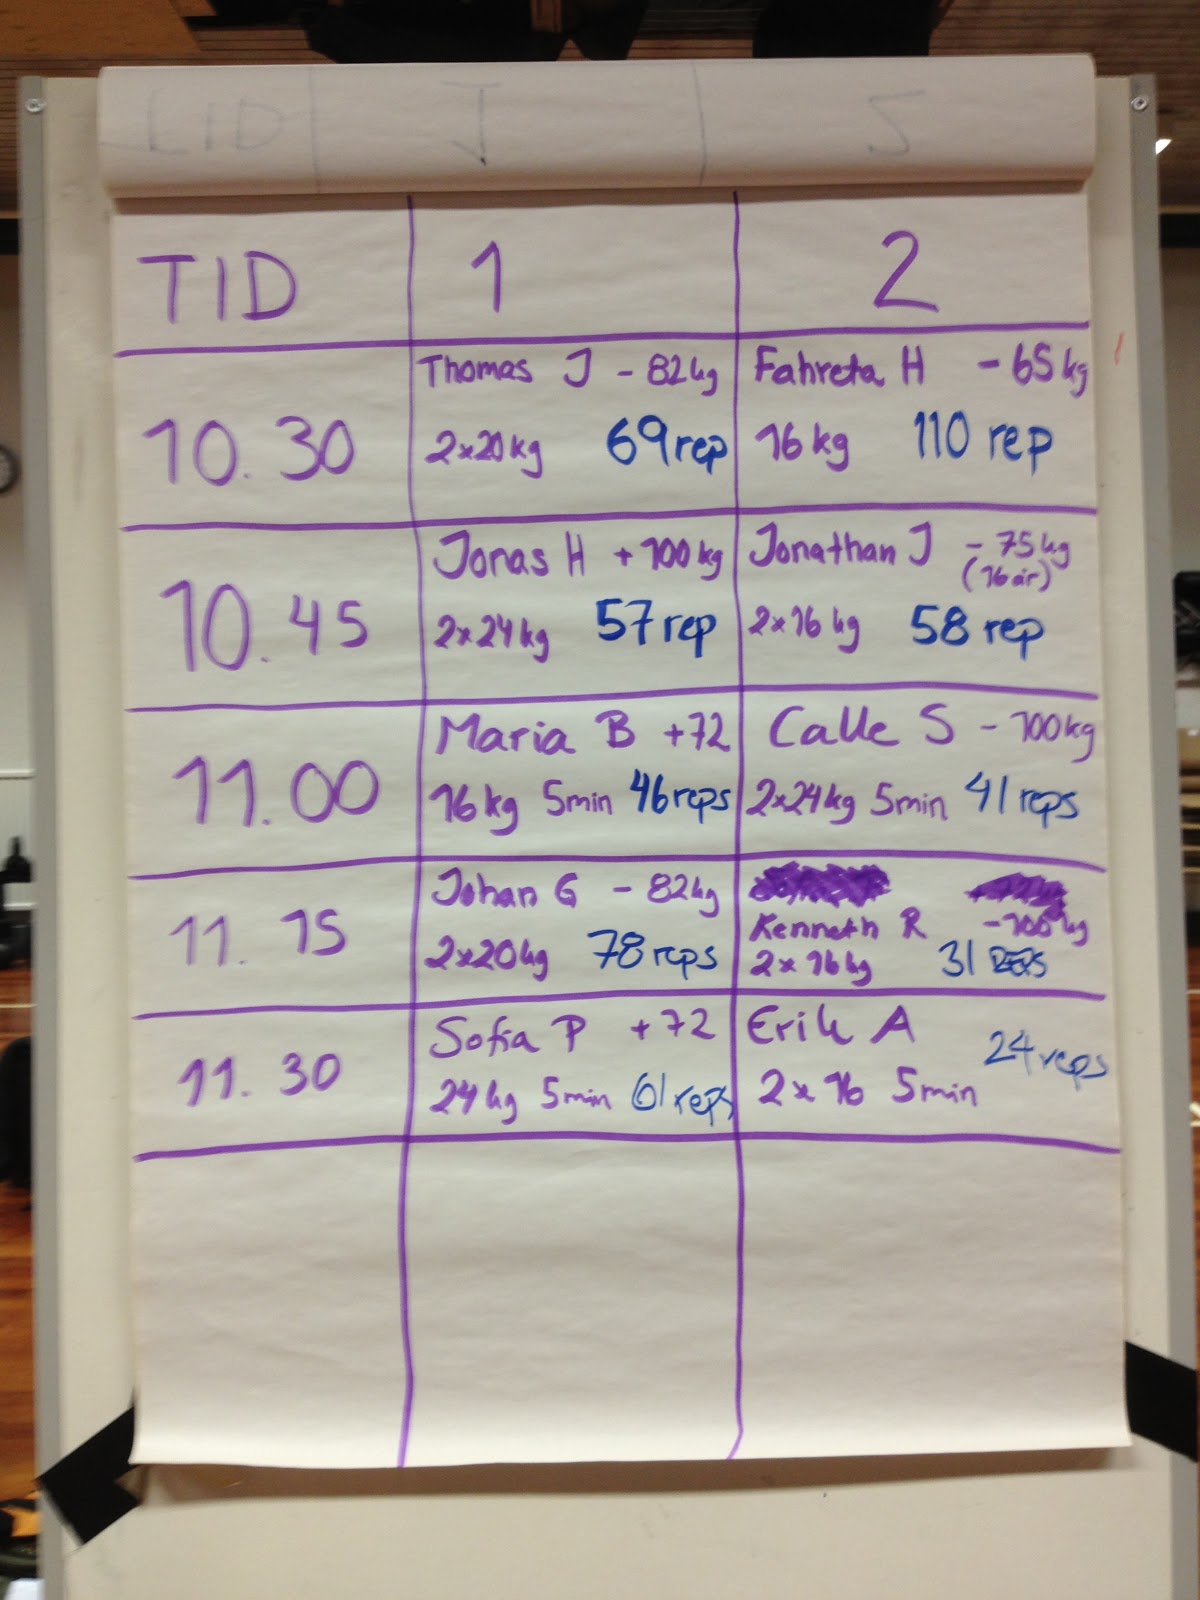 TID 1 2
10.30
Thomas J - 82kg
2x20kg 69rep
Fahreta H - 65kg
16kg 110 rep
10.45
Jonas H + 100kg
2x24kg 57rep
Jonathan J - 75kg
(16 år)
2x16kg 58 rep
11.00
Maria B +72
16kg 5min 46reps
Calle S - 100kg
2x24kg 5min 41 reps
11.15
Johan G - 82kg
2x20kg 78reps
Kenneth R - 100kg
2x16kg 31 REPS
11.30
Sofia P +72
24kg 5min 61reps
Erik A
24reps
2x16 5min